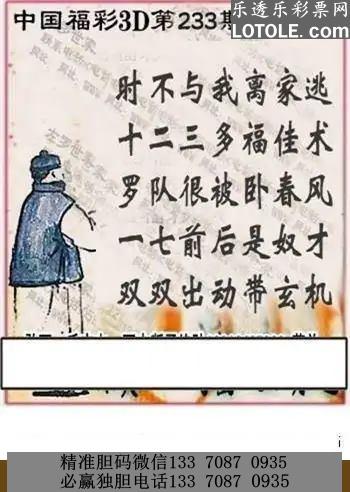 中国福彩3D第233期
乐透乐彩票网
LOTOLE.COM
时不与我离家逃
十二三多福佳术
罗队很被卧春风
一七前后是奴才
双双出动带玄机
精准胆码微信133 7087 0935
必赢独胆电话133 7087 0935